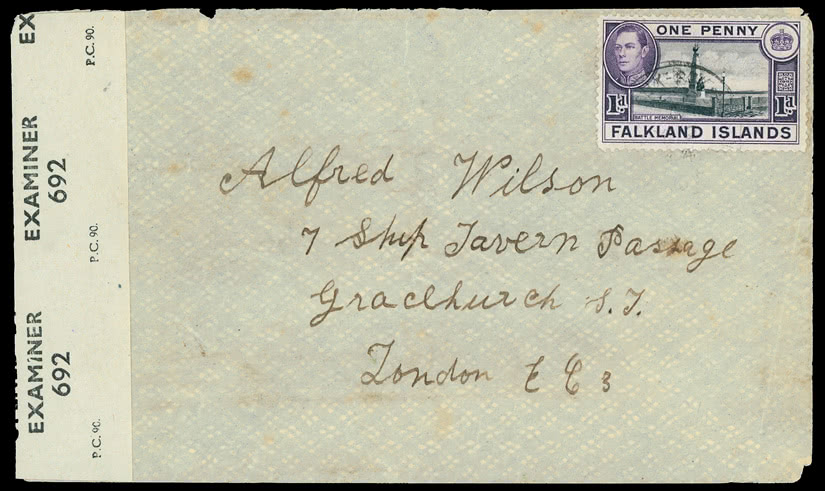 ONE PENNY
1d 1d
BATTLE MEMORIAL
FALKLAND ISLANDS
Alfred Wilson
7 Ship Tavern Passage
Gracechurch S.T.
London E C 3
EX
P.C. 90.
EXAMINER
692
P.C. 90.
EXAMINER
692
P.C. 90.